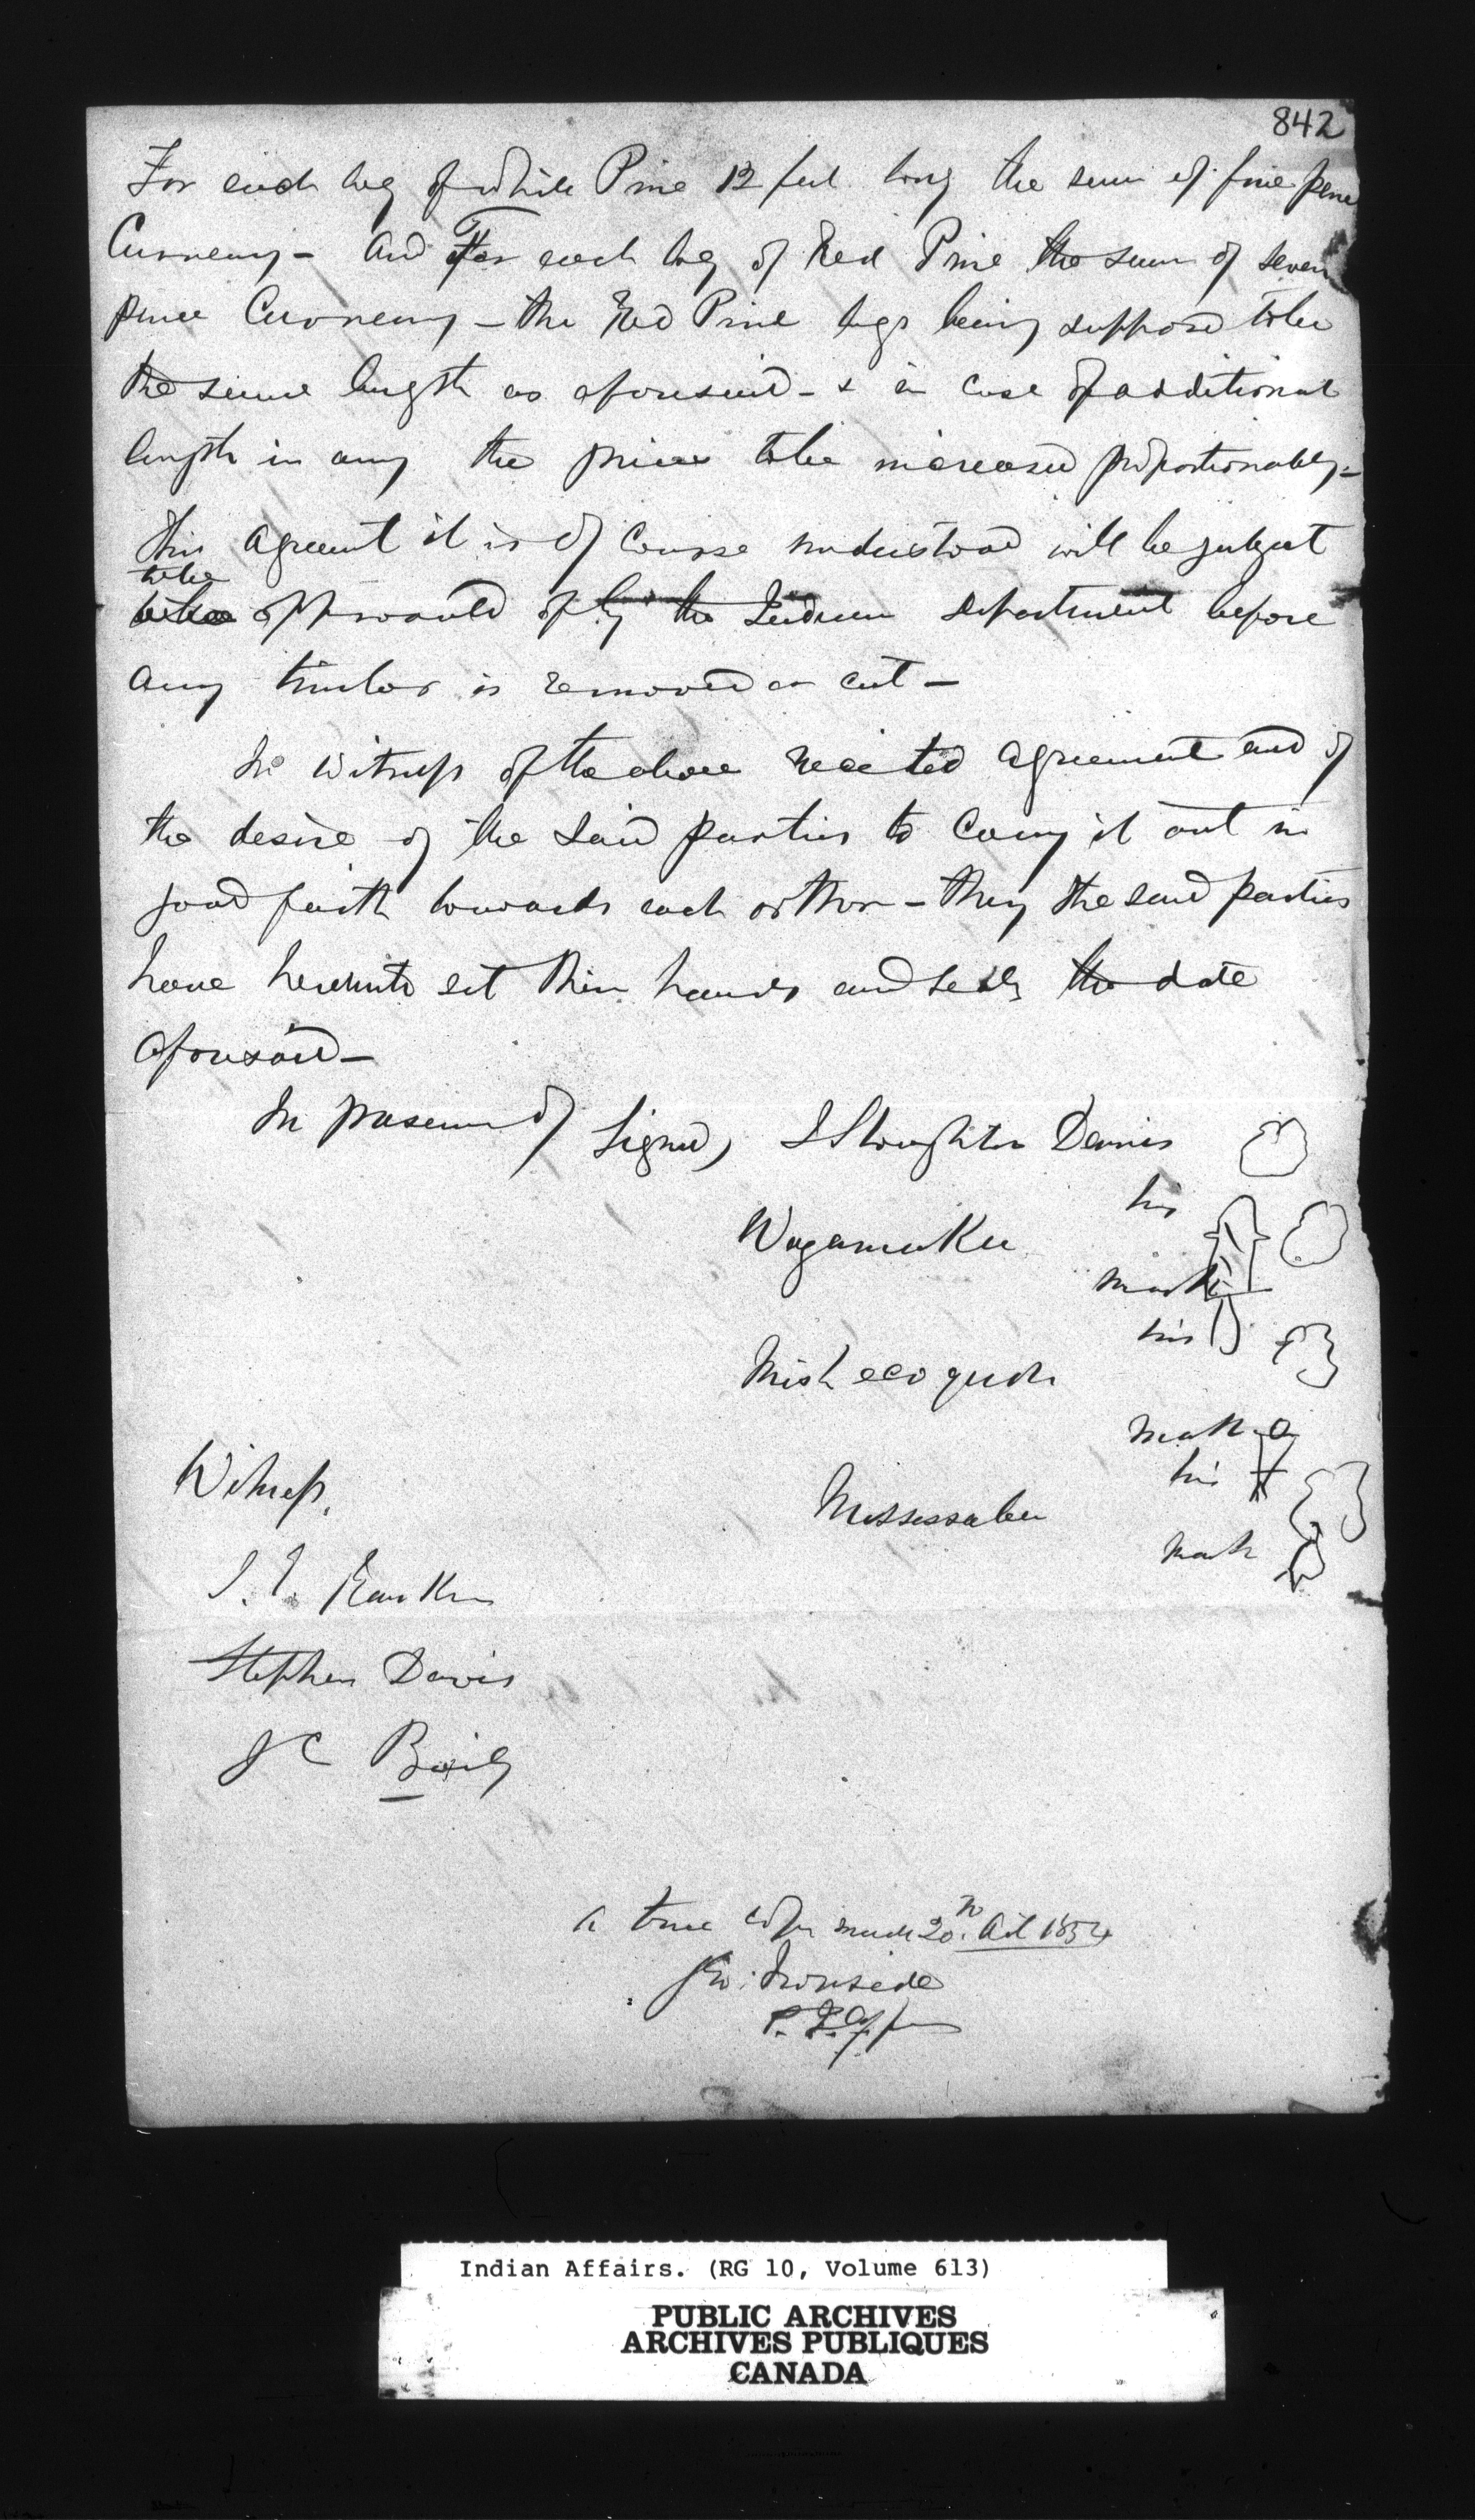 842
For each log of white Pine 12 feet long the sum of five pence
Currency - And For each log of Red Pine the sum of seven
pence Currency - the Red Pine logs being suppose to be
the same length as aforesaid - & in case of additional
length in any the price to be increased proportionably -
this agreemt it is of course understood will be subject
to be
approved of by the Indian Department before
any timber is removed or cut -
In witness of the above recited agreement and of
the desire of the said parties to carry it out in
good faith towards each orther - they the said parties
have hereunto set their hands and seals the date
aforesaid -
In presence of Signed, J Stoughton Dennis
his
Wagamukee
mark
his
Mishecoquoh
mark
Witness.
his
Missessabee
mark
J. L. Rankin
Stephen Davis
J C Baily
a true copy made 20th Ail 1854
Geo: Ironside
Indian Affairs. (RG 10, Volume 613)
PUBLIC ARCHIVES
ARCHIVES PUBLIQUES
CANADA